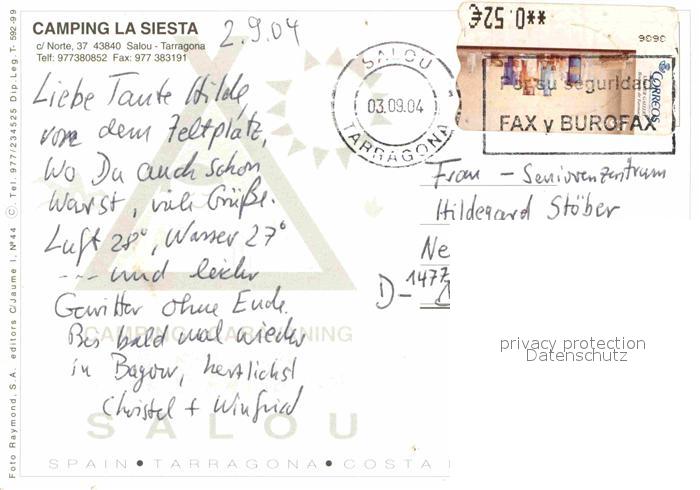 CAMPING LA SIESTA
c/ Norte, 37 43840 Salou - Tarragona
Telf: 977380852 Fax: 977 383191
2.9.04
Liebe Tante Hilde,
von dem Zeltplatz,
Wo Du auch schon
warst, viele Grüße.
Luft 28°, Wasser 27°
--- und leider
Gewitter ohne Ende.
Bis bald mal wieder
in Bagow, herzlichst
Christel + Winfried
CAMPING CARAVANING
SALOU
SPAIN • TARRAGONA • COSTA
Foto Raymond, S.A. editors C/Jaume I, Nº 44 Ⓒ. Tel. 977/234525 Dip. Leg. T- 592-99
SALOU
03.09.04
TARRAGONA
**0,52€
9090
CORREOS
Por su seguridad
FAX y BUROFAX
Frau - Seniorenzentrum
Hildegard Stöber
Ne
D-1477
privacy protection
Datenschutz